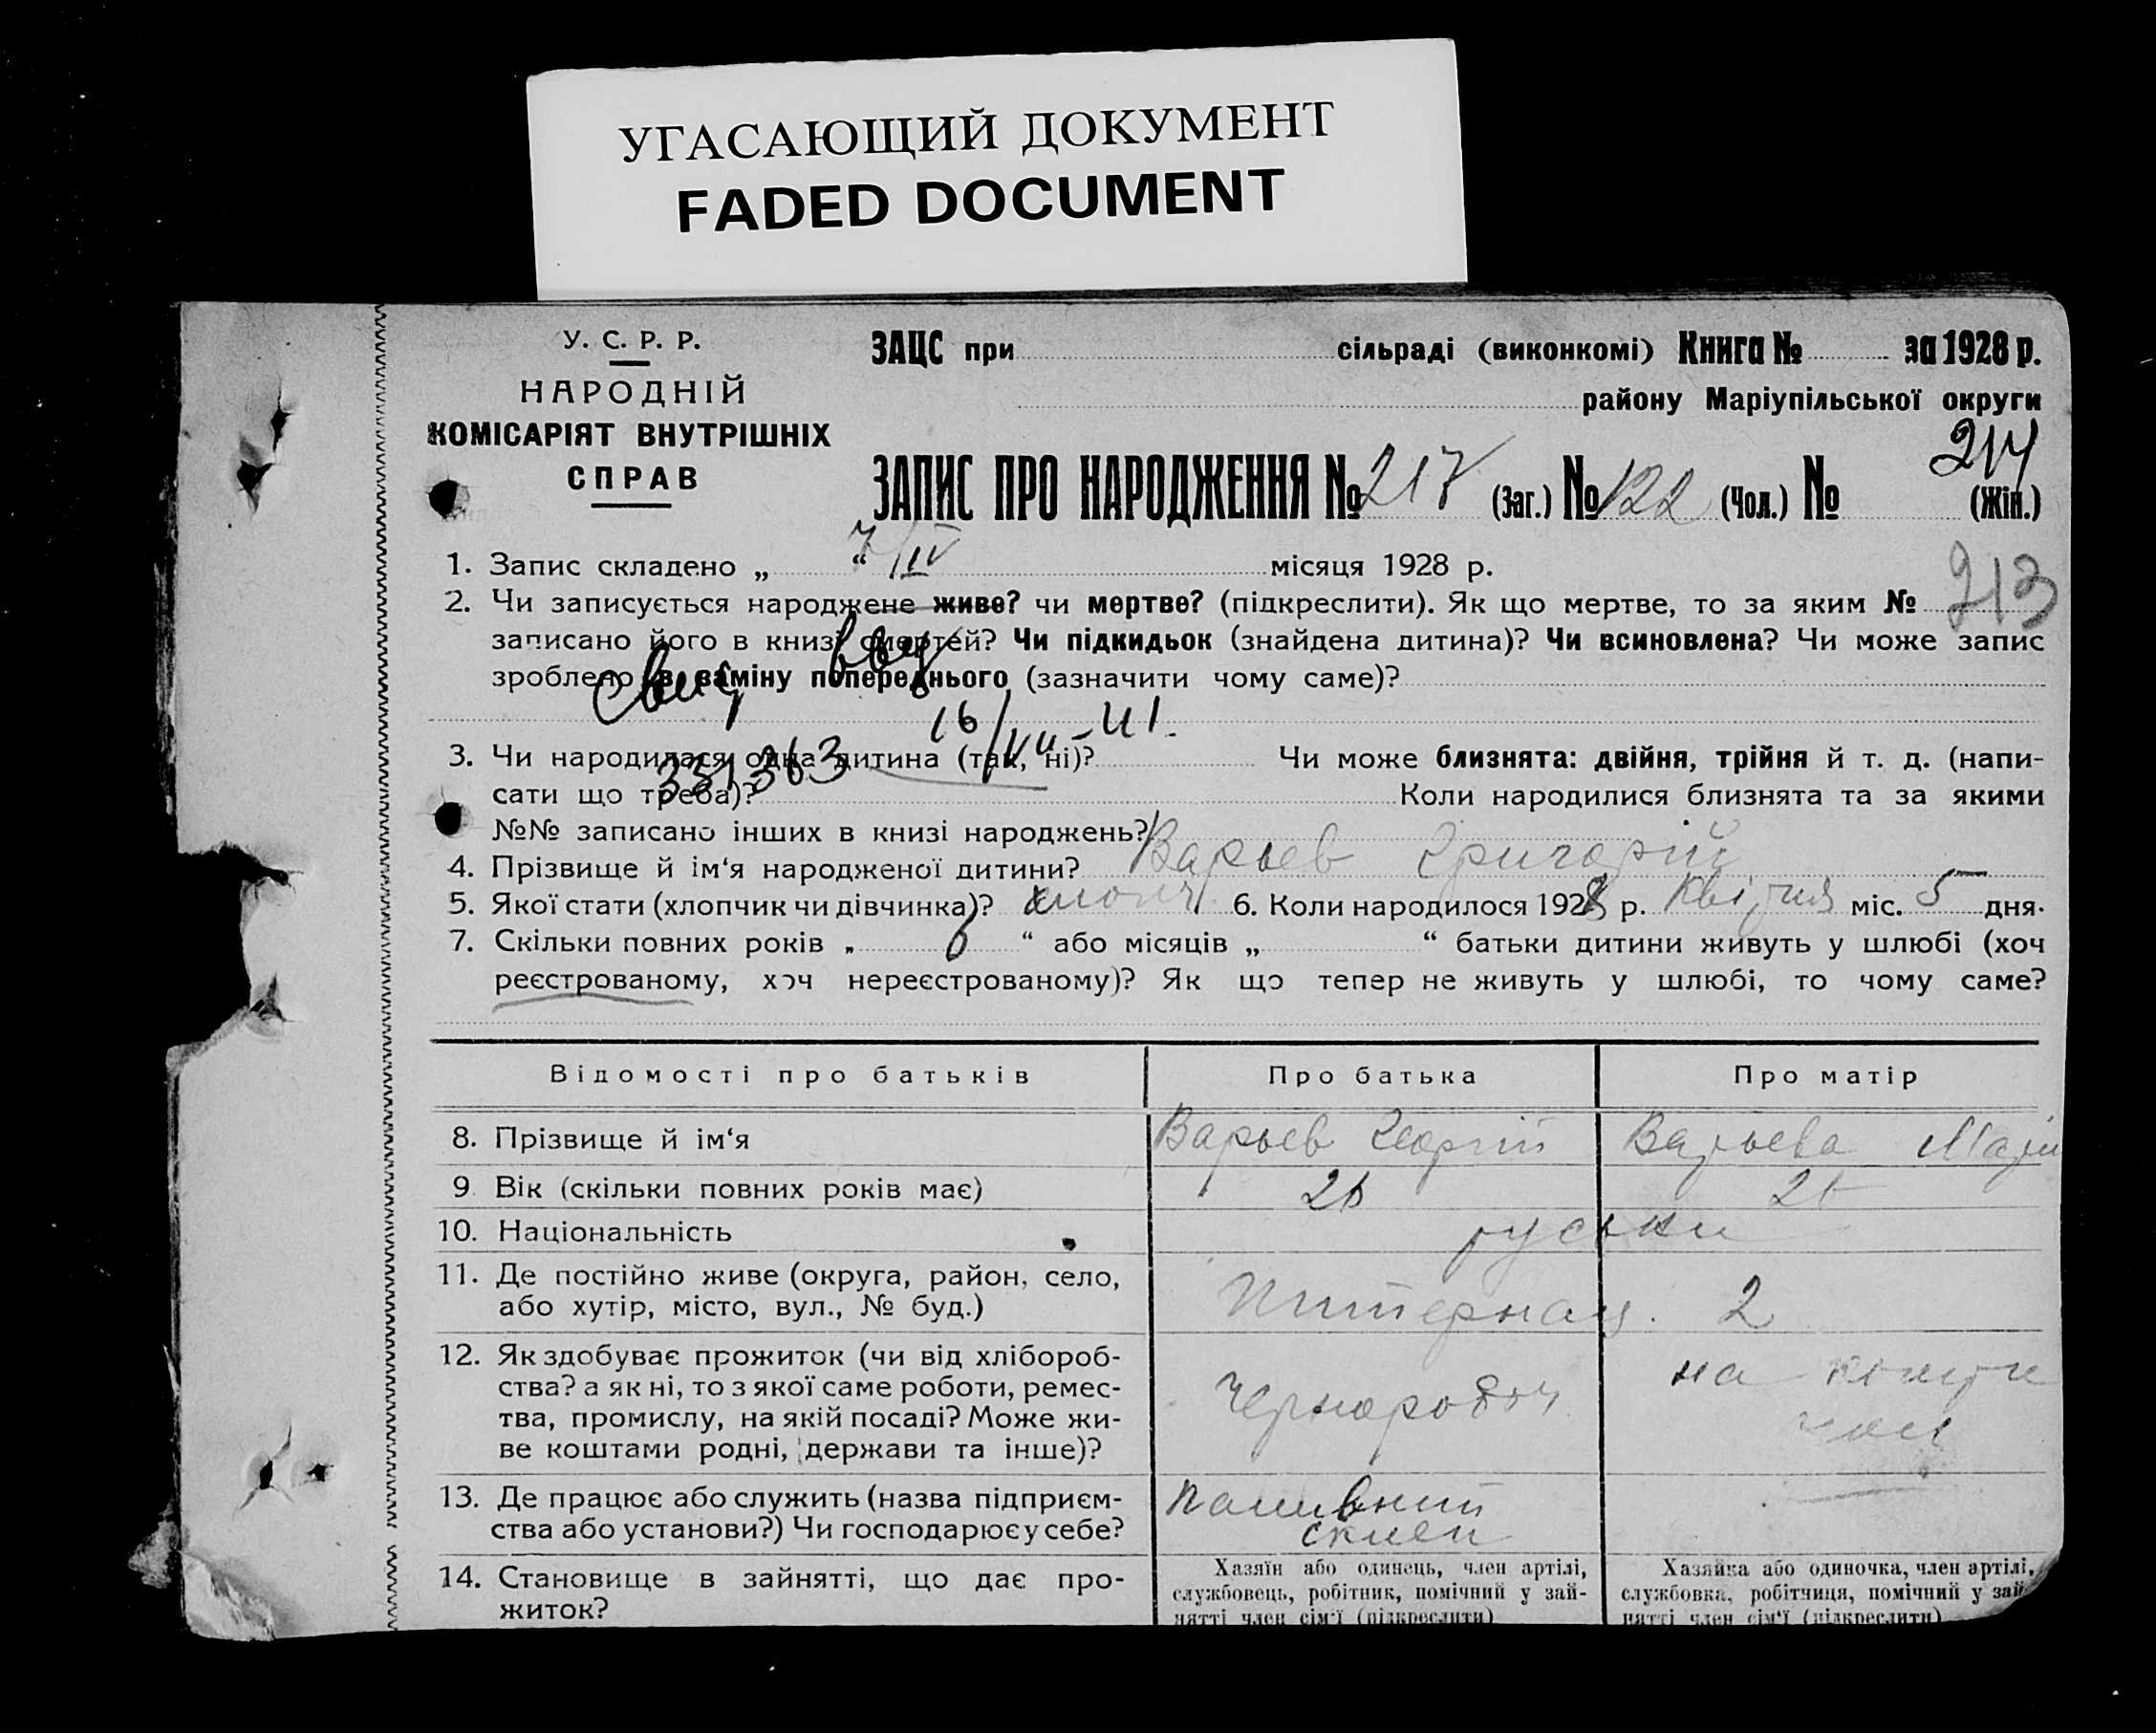 УГАСАЮЩИЙ ДОКУМЕНТ
FADED DOCUMENT
У. С. Р. Р.
НАРОДНІЙ
КОМІСАРІЯТ ВНУТРІШНІХ
СПРАВ
ЗАЦС при сільраді (виконкомі) Книга № за 1928 р.
району Маріупільської округи
214
ЗАПИС ПРО НАРОДЖЕННЯ № 217 (Заг.) № 122 (Чол.) № (Жін.)
1. Запис складено „ 7/IV “ місяця 1928 р.
2. Чи записується народжене живе? чи мертве? (підкреслити). Як що мертве, то за яким № 213
записано його в книзі смертей? Чи підкидьок (знайдена дитина)? Чи всиновлена? Чи може запис
зроблено в заміну попереднього (зазначити чому саме)?
16/VII-41.
3. Чи народилася одна дитина (так, ні)? Чи може близнята: двійня, трійня й т. д. (напи-
сати що треба)? Коли народилися близнята та за якими
№№ записано інших в книзі народжень?
4. Прізвище й ім‘я народженої дитини? Варьев Григорій
5. Якої стати (хлопчик чи дівчинка)? хлопч 6. Коли народилося 1928 р. Квітня міс. 5 дня.
7. Скільки повних років „ 6 “ або місяців „ “ батьки дитини живуть у шлюбі (хоч
реєстрованому, хоч нереєстрованому)? Як що тепер не живуть у шлюбі, то чому саме?
Відомості про батьків Про батька Про матір
8. Прізвище й ім‘я Варьев Георгій Варьева Марі
9. Вік (скільки повних років має) 26
10. Національність руськи
11. Де постійно живе (округа, район, село,
або хутір, місто, вул., № буд.) 2
12. Як здобуває прожиток (чи від хлібороб-
ства? а як ні, то з якої саме роботи, ремес-
тва, промислу, на якій посаді? Може жи-
ве коштами родні, держави та інше)? Чернороboч на
13. Де працює або служить (назва підприєм-
ства або установи?) Чи господарює у себе? Паливний
склеп
14. Становище в зайнятті, що дає про-
житок?
Хазяїн або одинець, член артілі,
службовець, робітник, помічний у зай-
нятті член сім‘ї (підкреслити)
Хазяйка або одиночка, член артілі,
службовка, робітниця, помічний у зай-
нятті член сім‘ї (підкреслити)